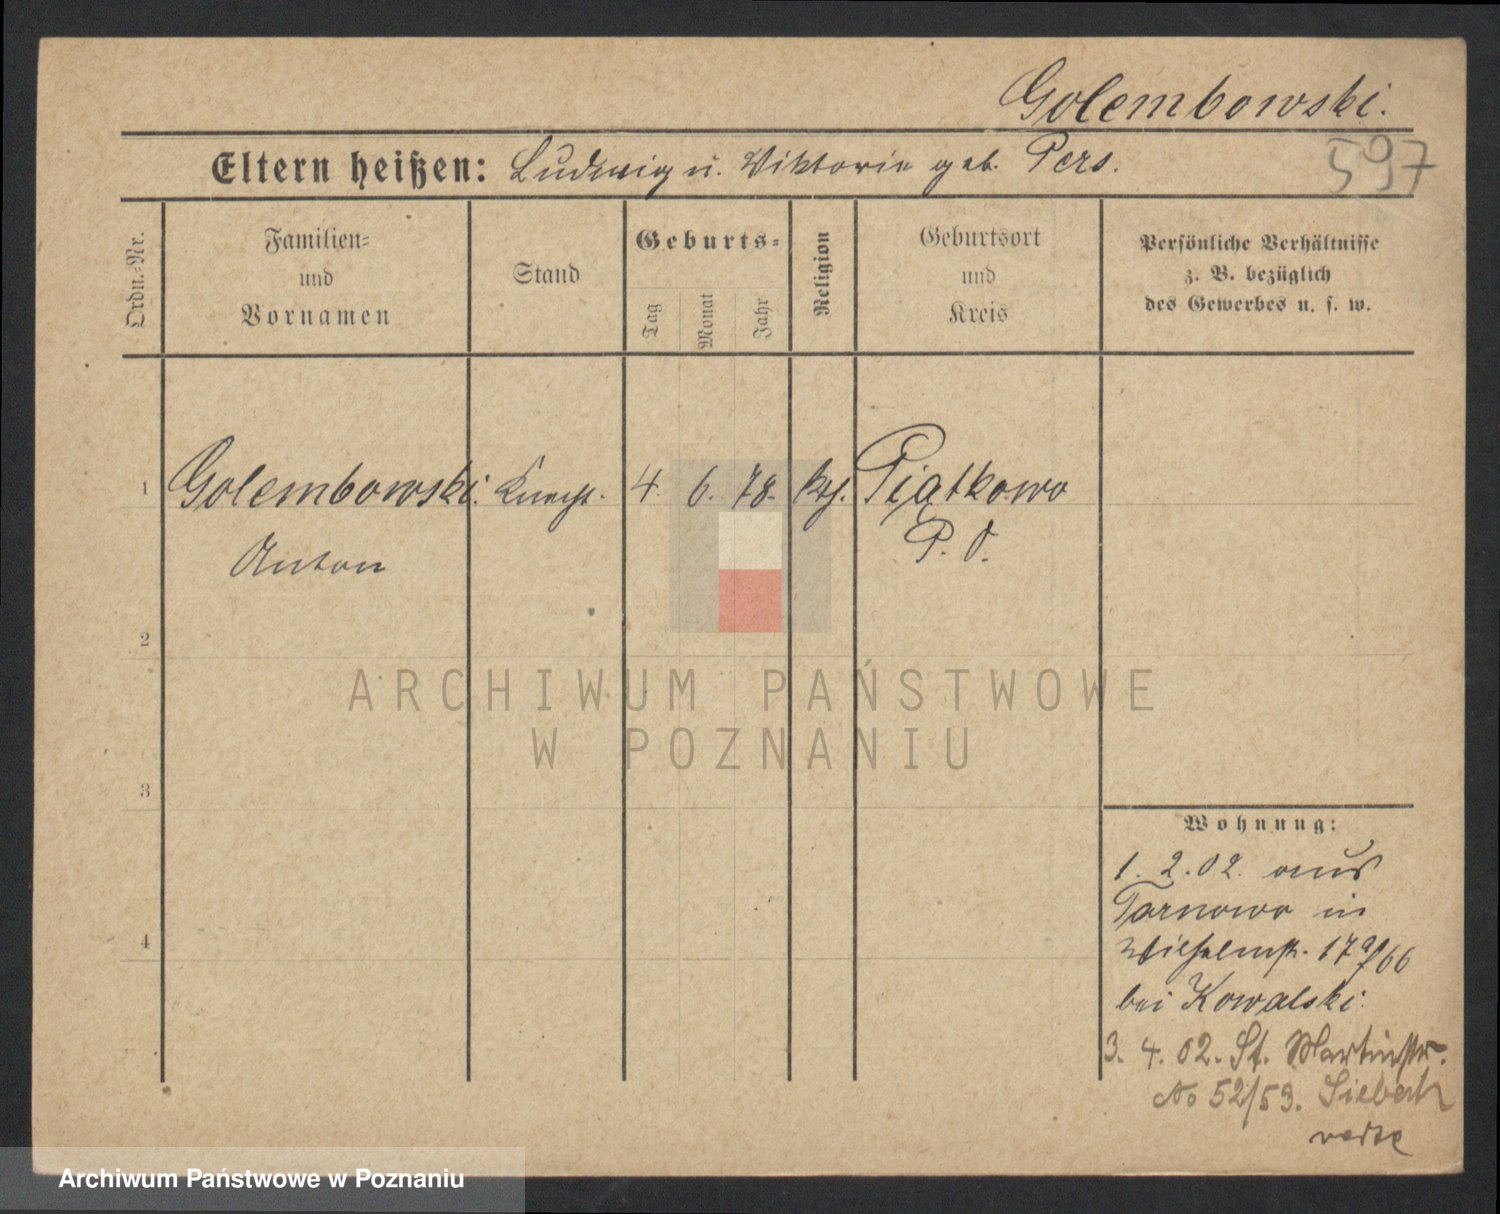 Golembowski.
597
Eltern heißen: Ludwig u. Viktoria geb. Pers.
Ordn.-Nr.
Familien-
und
Vornamen
Stand
Geburts-
Tag
Monat
Jahr
Religion
Geburtsort
und
Kreis
Persönliche Verhältnisse
z. B. bezüglich
des Gewerbes u. s. w.
1 Golembowski. Knecht. 4. 6. 78. kth. Piątkowo
Anton P. O.
2
3
4
ARCHIWUM PAŃSTWOWE
W POZNANIU
Wohnung:
1. 2. 02. aus
Tarnowo in
Wilhelmstr. 17 a/66
bei Kowalski.
3. 4. 02. St. Martinstr.
No 52/53. Siebert
verte
Archiwum Państwowe w Poznaniu